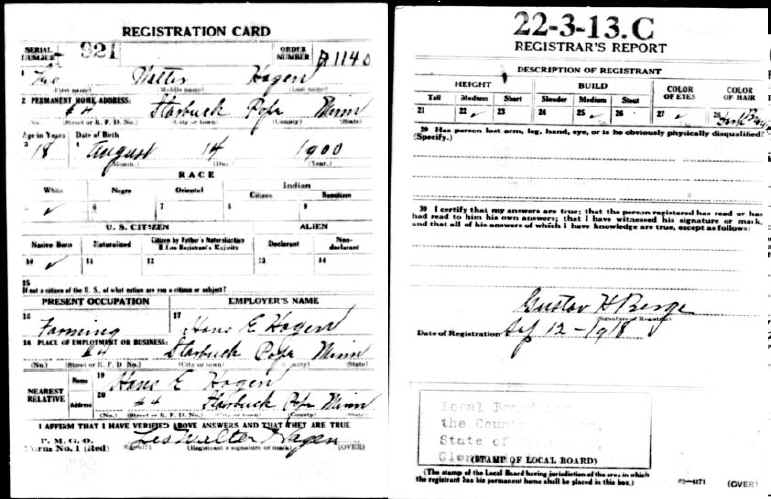 REGISTRATION CARD
SERIAL NUMBER 921 ORDER NUMBER A1140
1 Walter Hagen
(First name) (Middle name) (Last name)
2 PERMANENT HOME ADDRESS:
Starbuck Pope Minn
(No.) (Street or R. F. D. No.) (City or town) (County) (State)
Age in Years Date of Birth
3 18 4 August 14 1900
(Month.) (Day.) (Year.)
RACE
White Negro Oriental Indian
Citizen Noncitizen
5 ✓ 6 7 8 9
U. S. CITIZEN ALIEN
Native Born Naturalized Citizen by Father's Naturalization Before Registrant's Majority Declarant Non-declarant
10 ✓ 11 12 13 14
15
If not a citizen of the U. S., of what nation are you a citizen or subject?
PRESENT OCCUPATION EMPLOYER'S NAME
16 Farming 17 Hans E Hagen
18 PLACE OF EMPLOYMENT OR BUSINESS:
Starbuck Pope Minn
(No.) (Street or R. F. D. No.) (City or town) (County) (State)
NEAREST RELATIVE Name 19 Hans E Hagen
Address 20 Starbuck Pope Minn
(No.) (Street or R. F. D. No.) (City or town) (County) (State)
I AFFIRM THAT I HAVE VERIFIED ABOVE ANSWERS AND THAT THEY ARE TRUE
P. M. G. O.
Form No. 1 (Red) Walter Hagen
(Registrant's signature or mark) (OVER)
22-3-13.C
REGISTRAR'S REPORT
DESCRIPTION OF REGISTRANT
HEIGHT BUILD COLOR OF EYES COLOR OF HAIR
Tall Medium Short Slender Medium Stout
21 22 ✓ 23 24 25 ✓ 26 27 ✓ 28
29 Has person lost arm, leg, hand, eye, or is he obviously physically disqualified?
(Specify.)
30 I certify that my answers are true; that the person registered has read or has
had read to him his own answers; that I have witnessed his signature or mark,
and that all of his answers of which I have knowledge are true, except as follows:
Gustav H Berge
(Signature of Registrar)
Date of Registration Sep 12-1918
Local Board
the County
State of
(STAMP OF LOCAL BOARD)
(The stamp of the Local Board having jurisdiction of the area in which
the registrant has his permanent home shall be placed in this box.)
(OVER)